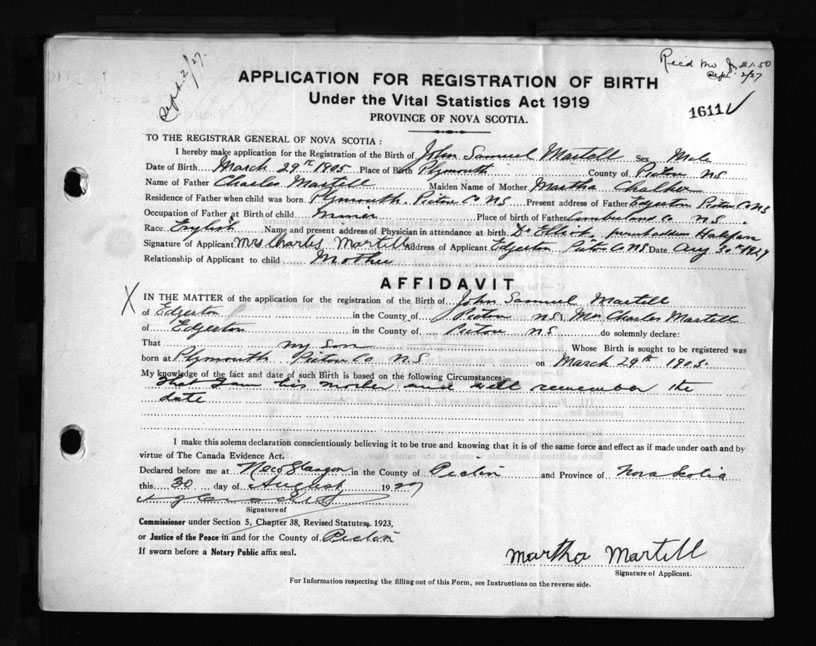 Sept. 2/27.
Rec'd Mo $1.50
Sept. 2/27
APPLICATION FOR REGISTRATION OF BIRTH
Under the Vital Statistics Act 1919
16111
PROVINCE OF NOVA SCOTIA.
TO THE REGISTRAR GENERAL OF NOVA SCOTIA:
I hereby make application for the Registration of the Birth of John Samuel Martell Sex Male
Date of Birth March 29th 1905 Place of Birth Plymouth County of Pictou NS
Name of Father Charles Martell Maiden Name of Mother Martha
Residence of Father when child was born Plymouth Pictou Co NS Present address of Father Edgerton Pictou Co NS
Occupation of Father at Birth of child miner Place of birth of Father Cumberland Co N.S.
Race English Name and present address of Physician in attendance at birth Dr present address Halifax
Signature of Applicant Mrs Charles Martell Address of Applicant Edgerton Pictou Co NS Date Aug 30th 1927
Relationship of Applicant to child Mother
AFFIDAVIT
X IN THE MATTER of the application for the registration of the Birth of John Samuel Martell
of Edgerton in the County of Pictou NS, Mrs Charles Martell
of Edgerton in the County of Pictou NS do solemnly declare:
That my Son Whose Birth is sought to be registered was
born at Plymouth Pictou Co N.S on March 29th 1905.
My knowledge of the fact and date of such Birth is based on the following Circumstances:
that I am his mother and well remember the
date
I make this solemn declaration conscientiously believing it to be true and knowing that it is of the same force and effect as if made under oath and by
virtue of The Canada Evidence Act.
Declared before me at New Glasgow in the County of Pictou and Province of Nova Scotia
this 30 day of August 1927
Signature of
Commissioner under Section 5, Chapter 38, Revised Statutes, 1923,
or Justice of the Peace in and for the County of Pictou
If sworn before a Notary Public affix seal.
Martha Martell
Signature of Applicant.
For Information respecting the filling out of this Form, see Instructions on the reverse side.